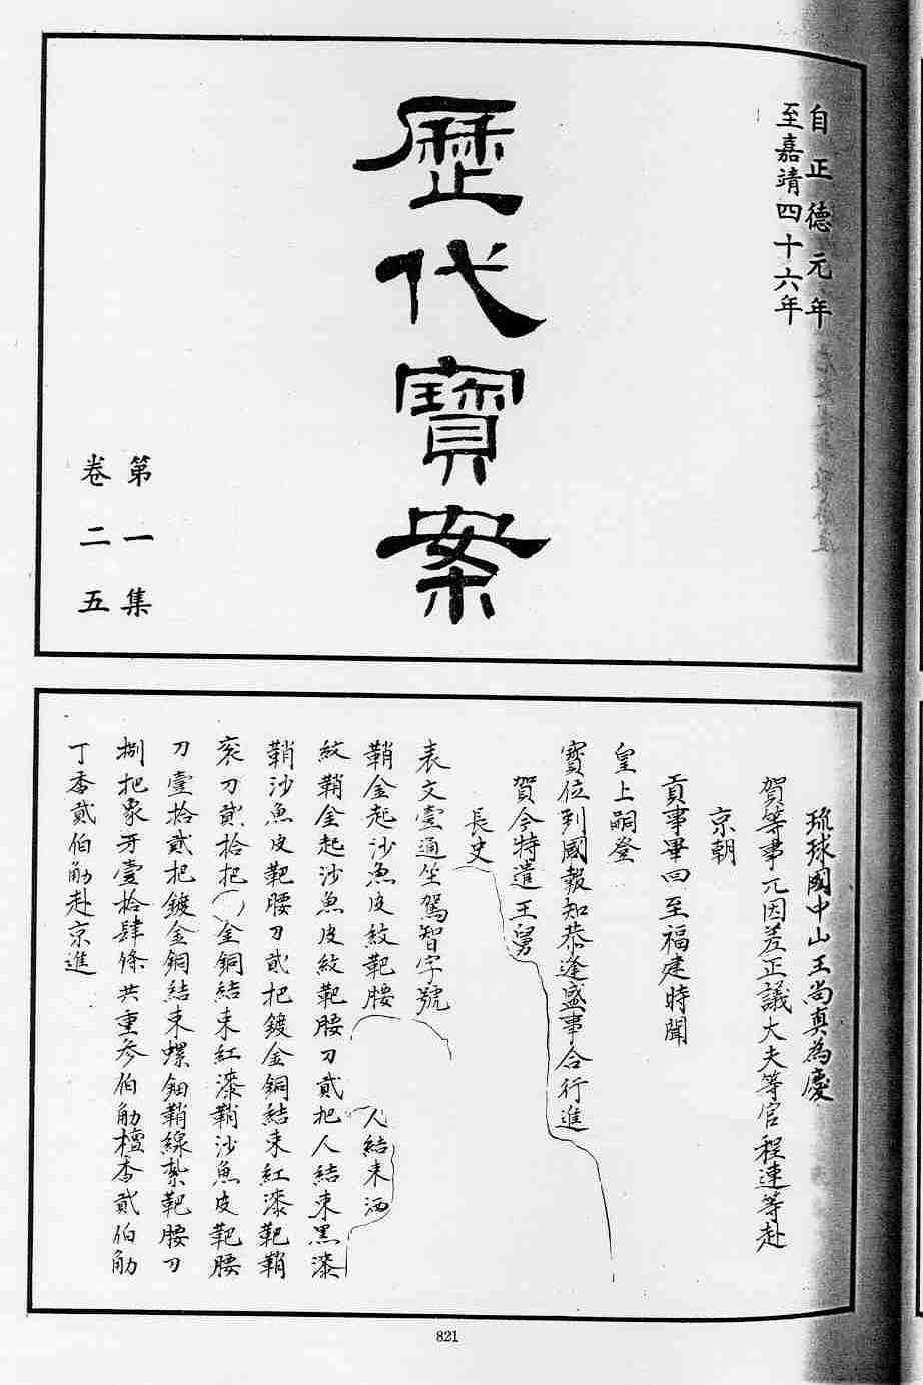 自正德元年
至嘉靖四十六年
歷代寶案
第一集
卷二五
琉球國中山王尚真為慶
賀等事兀因差正議大夫等官程連等赴
京朝
貢事畢回至福建時聞
皇上嗣登
寶位到國報知恭逢盛事合行進
賀今特遣王舅
長史
表文壹通坐駕智字號
鞘金起沙魚皮紋靶腰
人結束洒
紋鞘金起沙魚皮紋靶腰刀貳把人結束黑漆
鞘沙魚皮靶腰刀貳把鍍金銅結束紅漆靶鞘
袞刀貳拾把金銅結束紅漆鞘沙魚皮靶腰
刀壹拾貳把鍍金銅結束螺鈿鞘線紮靶腰刀
捌把象牙壹拾肆條共重參伯觔檀香貳伯觔
丁香貳伯觔赴京進
821